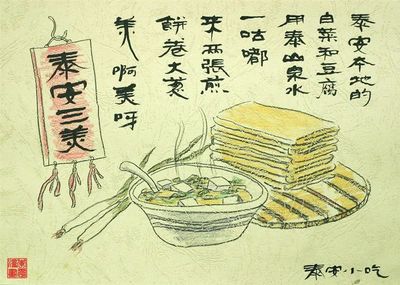 泰安本地的
白菜和豆腐
用泰山泉水
一咕嘟
来两張煎
餅卷大葱
美啊美呀
泰安三美
泰安小吃